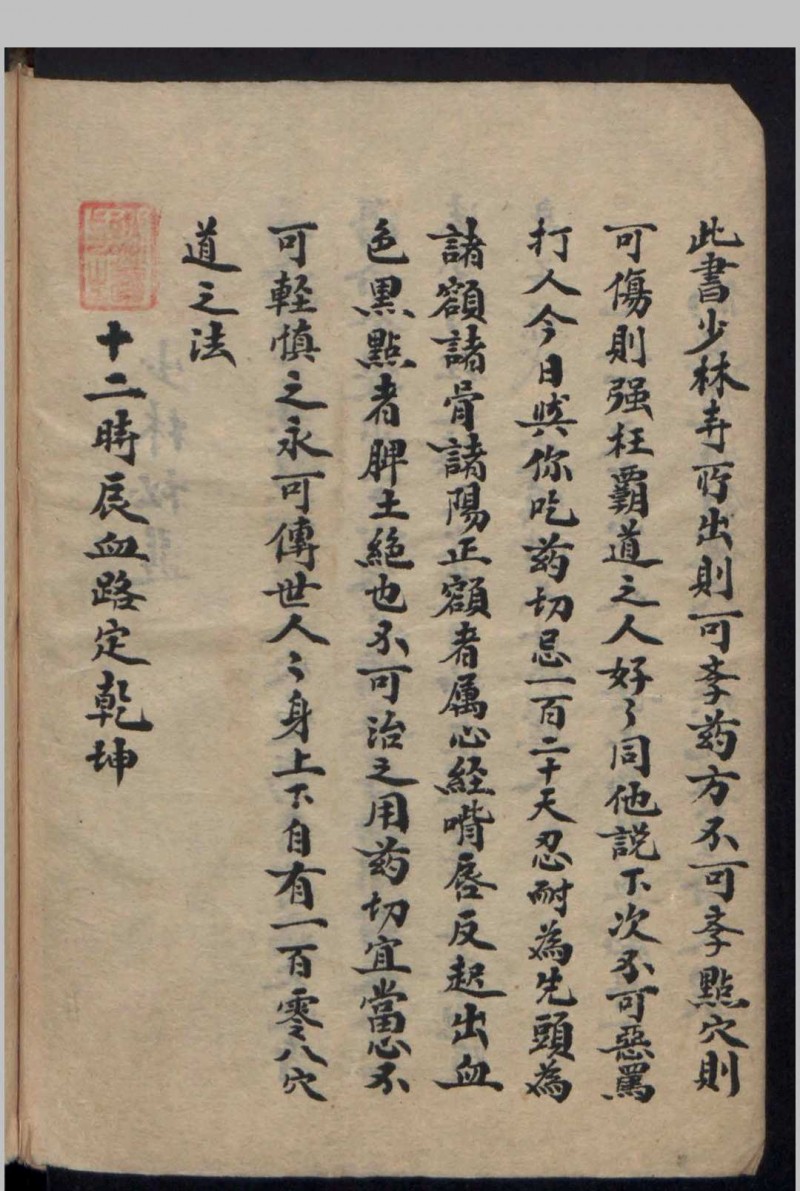 此書少林寺所出則可孝药方不可孝點穴則
可傷則强枉霸道之人好々同他説下次不可惡罵
打人今日與你吃药切忌一百二十天忍耐為先頭為
諸額諸骨諸陽正額者属心経嘴唇反起出血
色黒點者脾土絶也不可治之用药切宜當心不
可軽慎之永可傳世人々身上下自有一百零八穴
道之法
十二時辰血路定乾坤